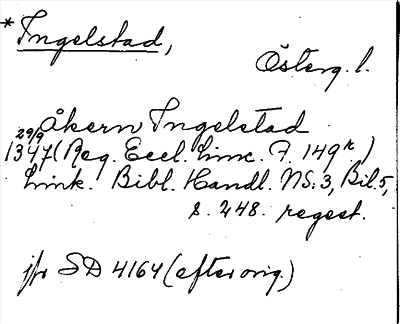 *Ingelstad,
Österg. l.
Åkern Ingelstad
29/9
1347 (Reg. Eccl. Linc. F. 149r)
Link. Bibl. Handl. NS. 3, Bil. 5,
s. 248. regest.
jfr SD 4164 (efter orig.)